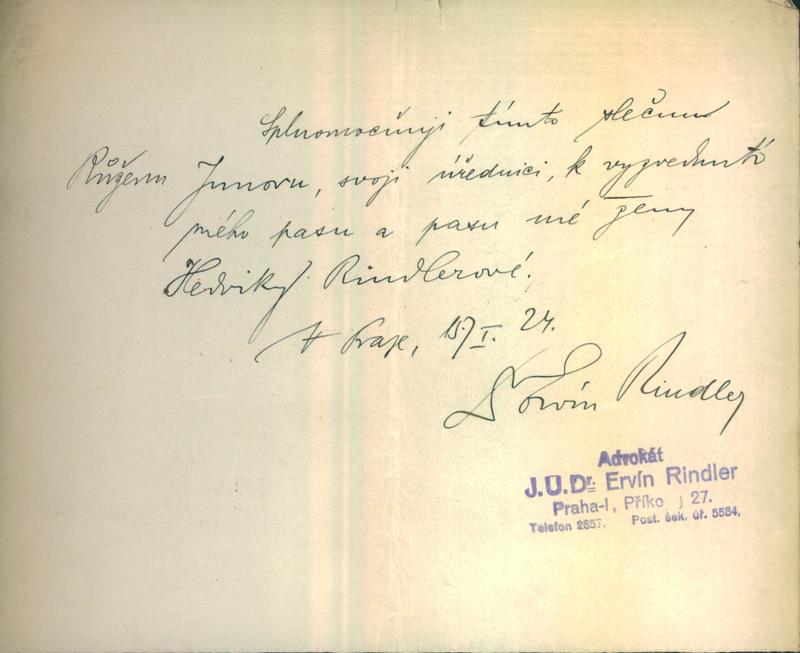 Splnomocňuji tímto slečnu
Růženu Junovu, svoji úřednici, k vyzvednutí
mého pasu a pasu mé ženy
Hedviky Rindlerové.
V Praze, 15/I. 24.
Dr Ervín Rindler
Advokát
J.U.Dr. Ervín Rindler
Praha-I, Příko j 27.
Telefon 2657. Post. šek. úř. 5584.